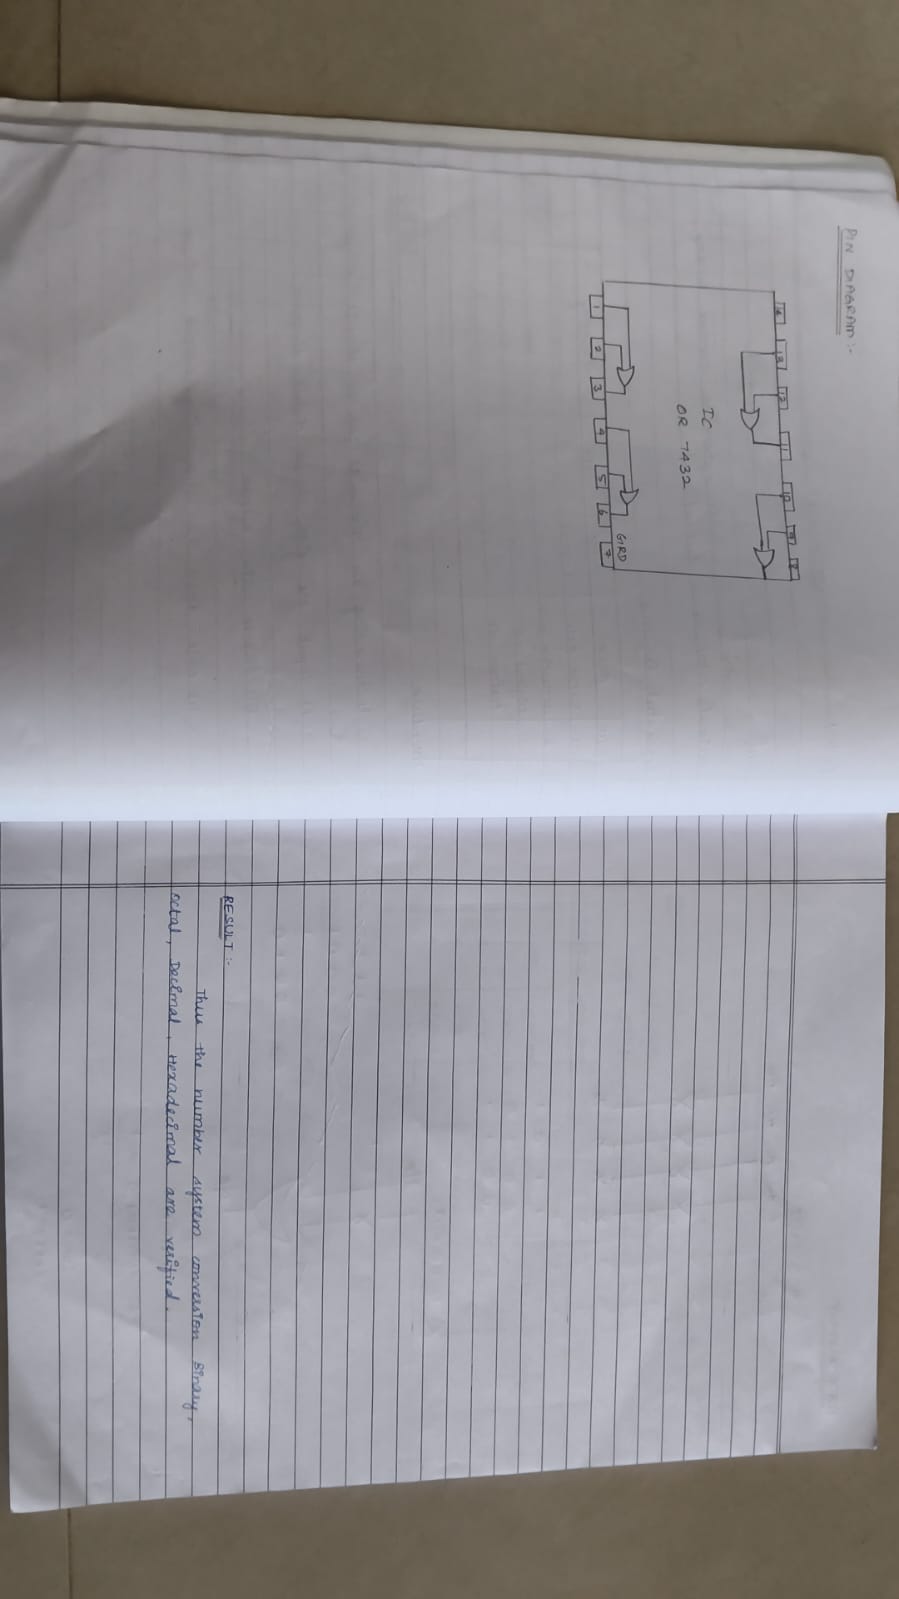 PIN DIAGRAM :-
14 13 12 11 10 9 8
IC
OR 7432
GIRD
1 2 3 4 5 6 7
RESULT :-
Thus the number system conversion Binary,
octal, Decimal, Hexadecimal are verified.